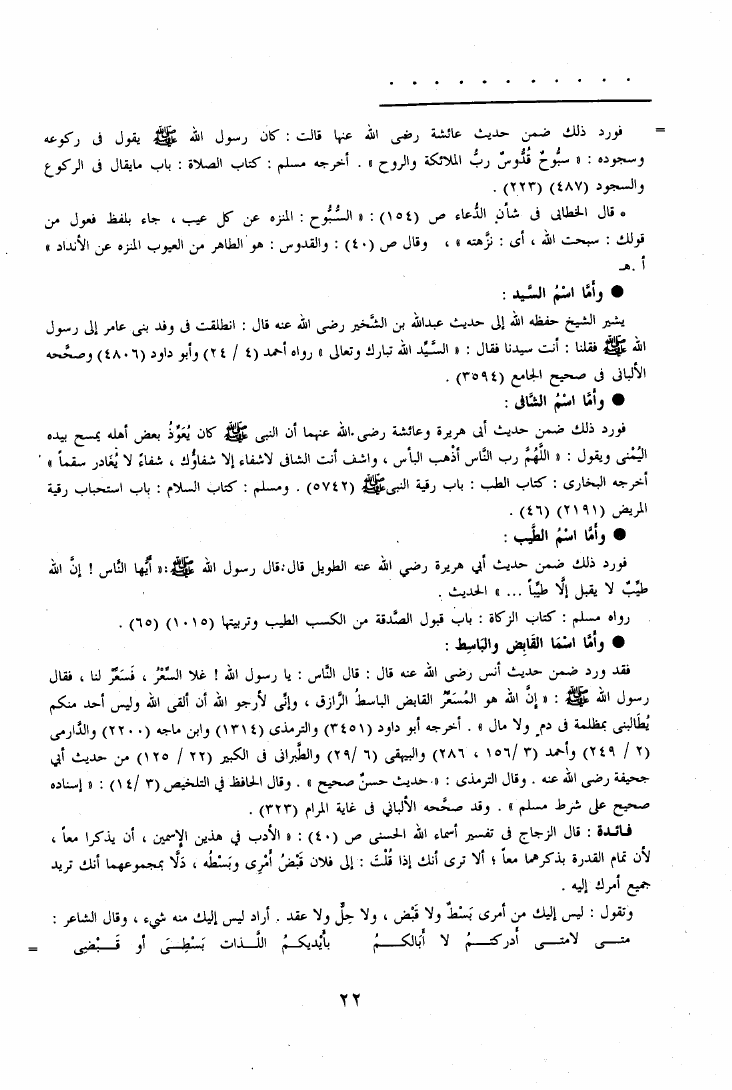 . . . . . . . . . .
= فورد ذلك ضمن حديث عائشة رضى الله عنها قالت : كان رسول الله ﷺ يقول فى ركوعه
وسجوده : « سبُّوحٌ قُدُّوسٌ ربُّ الملائكة والروح » . أخرجه مسلم : كتاب الصلاة : باب مايقال فى الركوع
والسجود (٤٨٧) (٢٢٣) .
* قال الخطابى فى شأن الدُّعاء ص (١٥٤) : « السُّبُّوح : المنزه عن كل عيب ، جاء بلفظ فعول من
قولك : سبحت الله ، أى : نزَّهته » ، وقال ص (٤٠) : والقدوس : هو الطاهر من العيوب المنزه عن الأنداد »
أ . هـ
● وأمَّا اسْمُ السَّيد :
يشير الشيخ حفظه الله إلى حديث عبدالله بن الشَّخير رضى الله عنه قال : انطلقت فى وفد بنى عامر إلى رسول
الله ﷺ فقلنا : أنت سيدنا فقال : « السَّيِّد الله تبارك وتعالى » رواه أحمد (٤ / ٢٤) وأبو داود (٤٨٠٦) وصحَّحه
الألبانى فى صحيح الجامع (٣٥٩٤) .
● وأمَّا اسْمُ الشَّافى :
فورد ذلك ضمن حديث أبى هريرة وعائشة رضى الله عنهما أن النبى ﷺ كان يُعَوِّذُ بعض أهله يمسح بيده
اليُمْنى ويقول : « اللَّهُمَّ رب النَّاس أذْهب البأس ، واشف أنت الشافى لاشفاء إلا شفاؤك ، شفاءً لا يُغادر سقماً »
أخرجه البخارى : كتاب الطب : باب رقية النبى ﷺ (٥٧٤٢) . ومسلم : كتاب السلام : باب استحباب رقية
المريض (٢١٩١) (٤٦) .
● وأمَّا اسْمُ الطَّيب :
فورد ذلك ضمن حديث أبي هريرة رضي الله عنه الطويل قال:قال رسول الله ﷺ:« أيُّها النَّاس ! إنَّ الله
طيِّبٌ لا يقبل إلَّا طيِّباً ... » الحديث .
رواه مسلم : كتاب الزكاة : باب قبول الصَّدقة من الكسب الطيب وتربيتها (١٠١٥) (٦٥) .
● وأمَّا اسْمَا القَابِض والبَاسِط :
فقد ورد ضمن حديث أنس رضى الله عنه قال : قال النَّاس : يا رسول الله ! غلا السِّعْرُ ، فَسَعِّرْ لنا ، فقال
رسول الله ﷺ : « إنَّ الله هو المُسَعِّرُ القابض الباسطُ الرَّازق ، وإنِّى لأرجو الله أن ألقى الله وليس أحد منكم
يُطَالبنى بمظلمة فى دم ولا مال » . أخرجه أبو داود (٣٤٥١) والترمذى (١٣١٤) وابن ماجه (٢٢٠٠) والدَّارمى
(٢ / ٢٤٩) وأحمد (٣ /١٥٦ ، ٢٨٦) والبيهقى (٦ /٢٩) والطَّبرانى فى الكبير (٢٢ / ١٢٥) من حديث أبي
جحيفة رضى الله عنه . وقال الترمذى : « حديث حسنٌ صحيح » . وقال الحافظ في التلخيص (٣ /١٤) : « إسناده
صحيح على شرط مسلم » . وقد صحَّحه الألباني فى غاية المرام (٣٢٣) .
فـائـدة : قال الزجاج فى تفسير أسماء الله الحسنى ص (٤٠) : « الأدب في هذين الإسمين ، أن يذكرا معاً ،
لأن تمام القدرة بذكرهما معاً ؛ ألا ترى أنك إذا قُلْتَ : إلى فلان قَبْضُ أمْرِى وبَسْطُه ، دَلَّا بمجموعهما أنك تريد
جميع أمرك إليه .
وتقول : ليس إليك من أمرى بَسْطٌ ولا قَبْض ، ولا حِلٌّ ولا عقد . أراد ليس إليك منه شيء ، وقال الشاعر :
متـــى لامتـــى أدركتـــمُ لا أَبَالكـــمُ بأيديكـــمُ اللَّـــذات بَسْطِـــىَ أو قَـــبْضِى =
٢٢